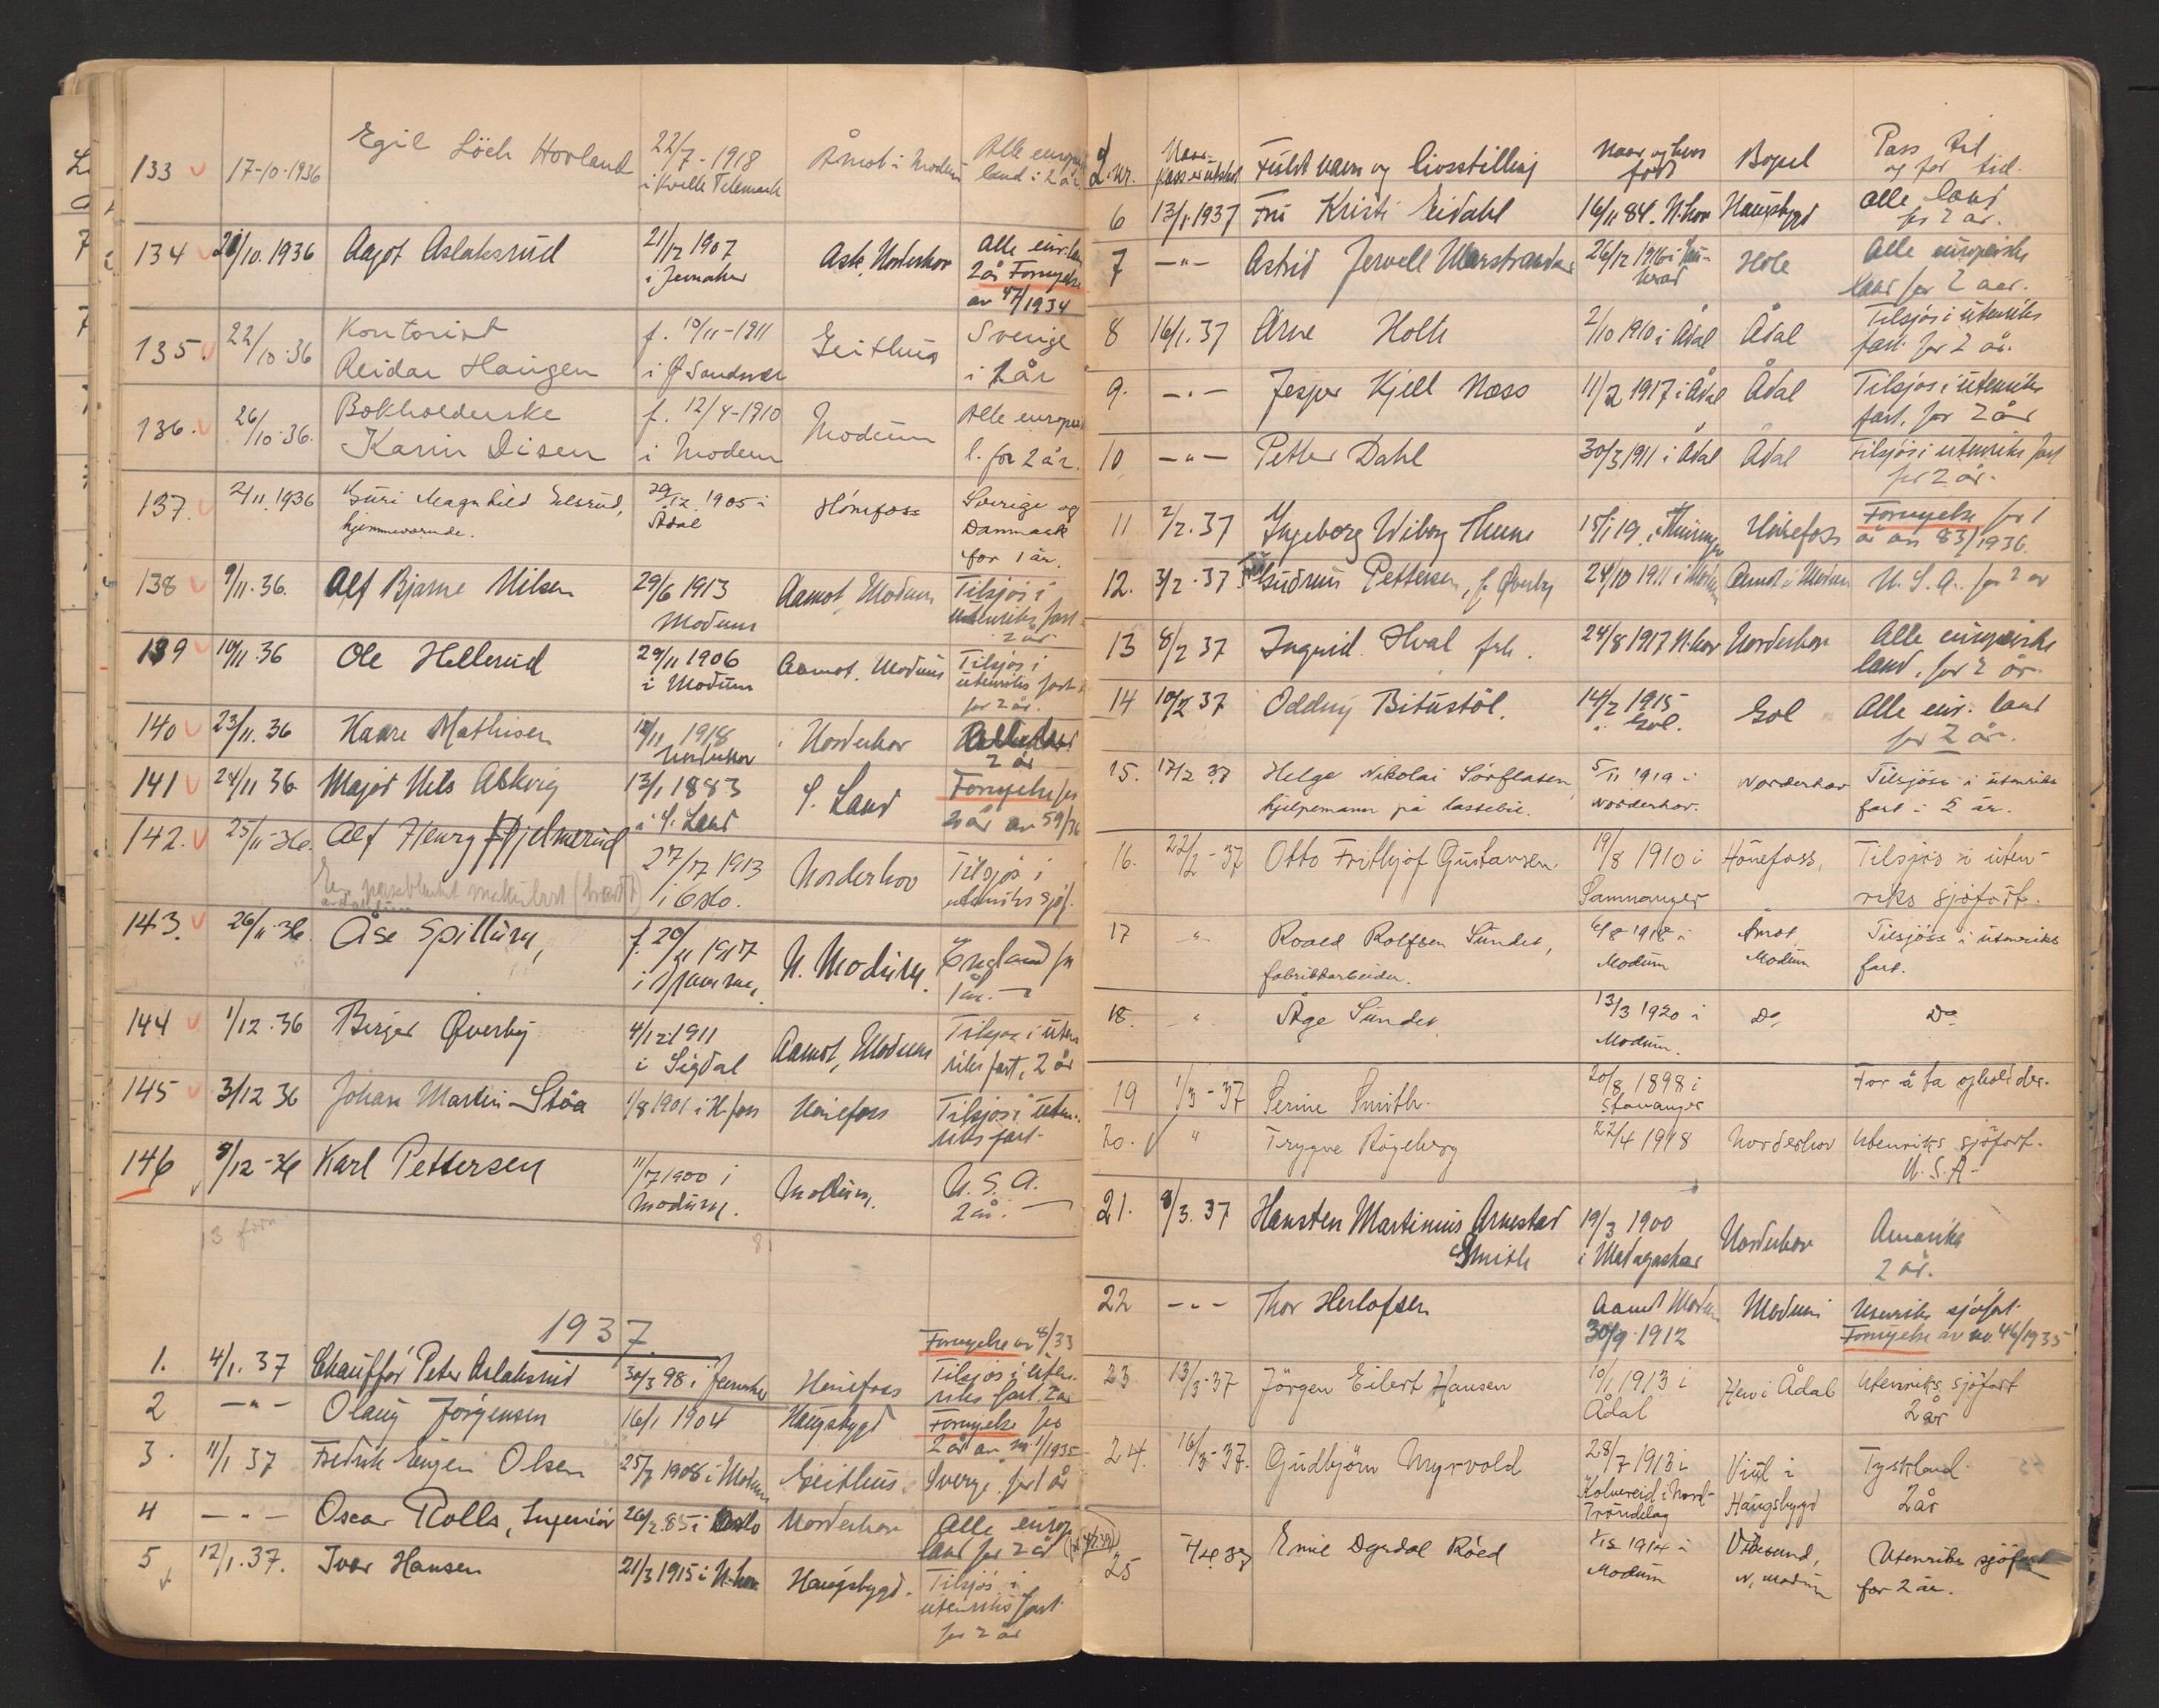 133 17-10-1936 Egil Löch Hovland 22/7-1918 Åmot i Modum Alle europ.
i Telemark land i 2 år
134 21/10.1936 Aagot Aslaksrud 21/12 1907 Ask, Norderhov Alle eur. lan
i Jevnaker 2 år Fornyelse
av 47/1934
135 22/10-36 Kontorist f. 10/11-1911 Geithus Sverige
Reidar Haugen i Ø Sandsvær i 1 år
136. 26/10-36. Bokholderske f. 12/4-1910 Modum Alle europeis
Karin Disen i Modum l. for 2 år.
137. 2/11.1936 Guri Magnhild Elsrud, 29/12 1905 i Hönefoss Sverige og
hjemmeværende. Ådal Danmark
for 1 år.
138 9/11.36. Alf Bjarne Nilsen 29/6 1913 Aamot, Modum Tilsjøs i
Modum utenriks fart
2 år
139 10/11.36 Ole Hellerud 29/11 1906 Aamot, Modum Tilsjøs i
i Modum utenriks fart
for 2 år.
140 23/11.36 Kaare Mathisen 1918 Norderhov Alle land
Norderhov 2 år
141 24/11 36 Major Nils Askvig 13/1 1883 S. Land Fornyelse for
i S. Land 2 år av 59/36
142. 25/11-36. Alf Henry Hjelmerud 27/7 1913 Norderhov Tilsjøs i
i Oslo. utenriks sjøf.
143. 26/11-36. Åse Spillum, f. 20/11 1917 N. Modum. England for
i 1 år.
144 1/12.36 Birger Øverby 4/12 1911 Aamot, Modum Tilsjøs i uten
i Sigdal riks fart, 2 år
145 3/12 36 Johan Martin Støa 1/8 1901 i H.foss Hønefoss Tilsjøs i uten-
riks fart-
146 8/12-36 Karl Pettersen 11/7 1900 i Modum. U.S.A.
Modum. 2 år.
1937.
Fornyelse av 8/33
1. 4/1.37 Chauffør Peter Aslaksrud 30/3 98 i Jevnaker Hønefoss Tilsjøs i uten-
riks fart. 2 år
2 -"- Olaug Jørgensen 16/1 1904 Haugsbygd Fornyelse for
2 år av nr 1/1935
3. 11/1 37 Fredrik Eugen Olsen 25/7 1908 i Modum Geithus. Sverge for 1 år
4 -"- Oscar Rolls, Ingeniör 26/2 85 i Oslo Norderhov Alle europ
land for 2 år
5 12/1.37. Ivar Hansen 21/3 1915 i N.hov Haugsbygd. Tilsjøs i
utenriks fart
for 2 år
L.nr. Naar pass er utstedt Fuldt navn og livsstilling Naar og hvor Bopel Pass til
født og for tid.
6 13/1 1937 Fru Kristi Eidahl 16/11 84. N.hov Haugsbygd alle land
for 2 år.
7 -"- Astrid Jervell Marstrander 26/12 1916 i Hole Alle europeiske
land for 2 aar.
8 16/1.37 Arne Holte 2/10 1910 i Ådal Ådal Tilsjøs i utenriks
fart for 2 år.
9. -"- Jesper Kjell Næss 11/2 1917 i Ådal Ådal Tilsjøs i utenriks
fart. for 2 år
10 -"- Petter Dahl 30/3 1911 i Ådal Ådal Tilsjøs i utenriks fart
for 2 år.
11 2/2.37 Ingeborg Wiborg Thune 15/1 19. Hønefoss Fornyelse for 1
år av 83/1936.
12. 3/2.37 Gudrun Pettersen, f. Øverby 24/10 1911 i Modum Aamot i Modum U.S.A. for 2 år
13 8/2 37 Ingrid Hval frk. 24/8 1917 N.hov Norderhov Alle europeiske
land, for 2 år.
14 10/2 37 Oddny Bitustöl. 14/2 1915 Gol Alle eur. land
i Gol. for 2 år.
15. 17/2 37 Helge Nikolai Sörflaten 5/11 1919 i Norderhov Tilsjöss i utenriks
hjelpemann på lastebil. Norderhov. fart i 2 år.
16. 22/2-37 Otto Frithjof Gustavsen 19/8 1910 i Hönefoss, Tilsjøs i uten-
Samnanger riks sjöfart.
17 " Roald Rolfsen Sundet, 1918 i Åmot, Tilsjöss i utenriks
fabrikkarbeider. Modum Modum fart.
18. " Åge Sundet 13/3 1920 i Do. Do.
Modum.
19 1/3-37 Serine Smith. 20/8 1898 i For å ta ophold der.
Stavanger
20. " Trygve Rögeberg 22/4 1918 Norderhov Utenriks sjöfart.
U.S.A-
21. 8/3.37 Hansten Martinius Arnestad 19/3 1900 Norderhov Amerika
Smith i Madagaskar 2 år.
22 -"- Thor Herlofsen Aamot Modum Modum Utenriks sjøfart
30/9 1912 Fornyelse av nr. 46/1935
23 13/3-37 Jörgen Eilert Hansen 10/1 1913 i Hen i Ådal Utenriks sjøfart
Ådal 2 år
24. 16/3-37. Gudbjörn Myrvold 28/7 1913 i Viul i Tyskland.
Kolvereid i Nord- Haugsbygd 2 år
Tröndelag
25 Emil Røed 1914 i Vikesund, Utenriks sjøfart
Modum N. Modum for 2 år.